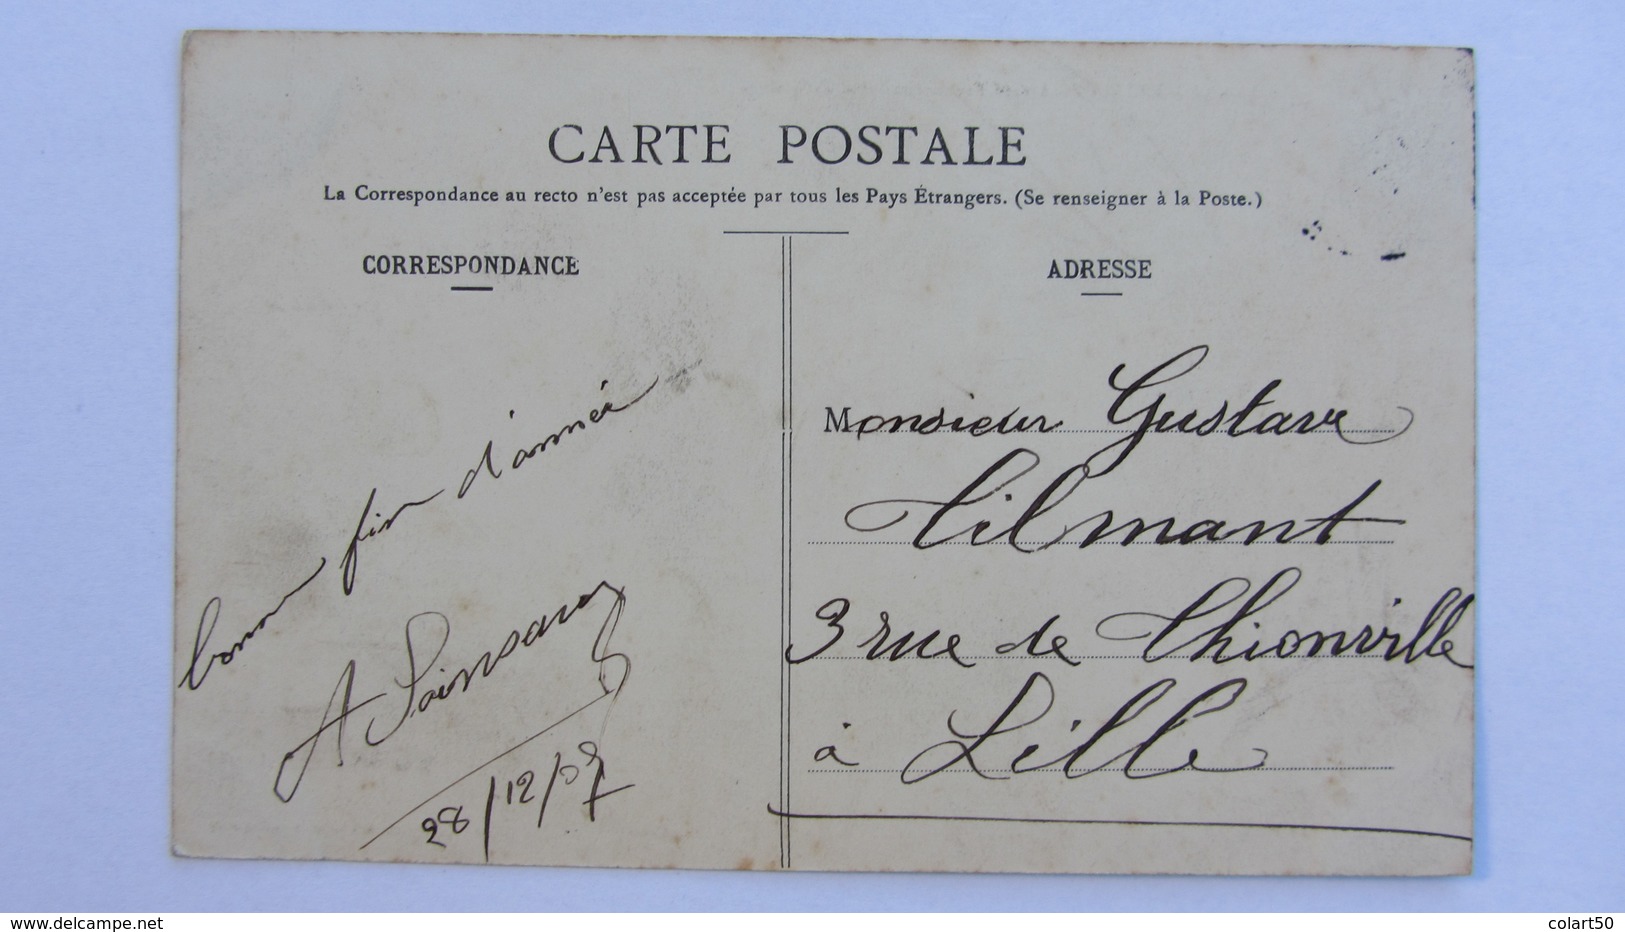 CARTE POSTALE
La Correspondance au recto n'est pas acceptée par tous les Pays Étrangers. (Se renseigner à la Poste.)
CORRESPONDANCE
bonne fin d'année
A
28/12/07
ADRESSE
Monsieur Gustave
Tilmant
3 rue de Thionville
à Lille
delcampe.net
colart50